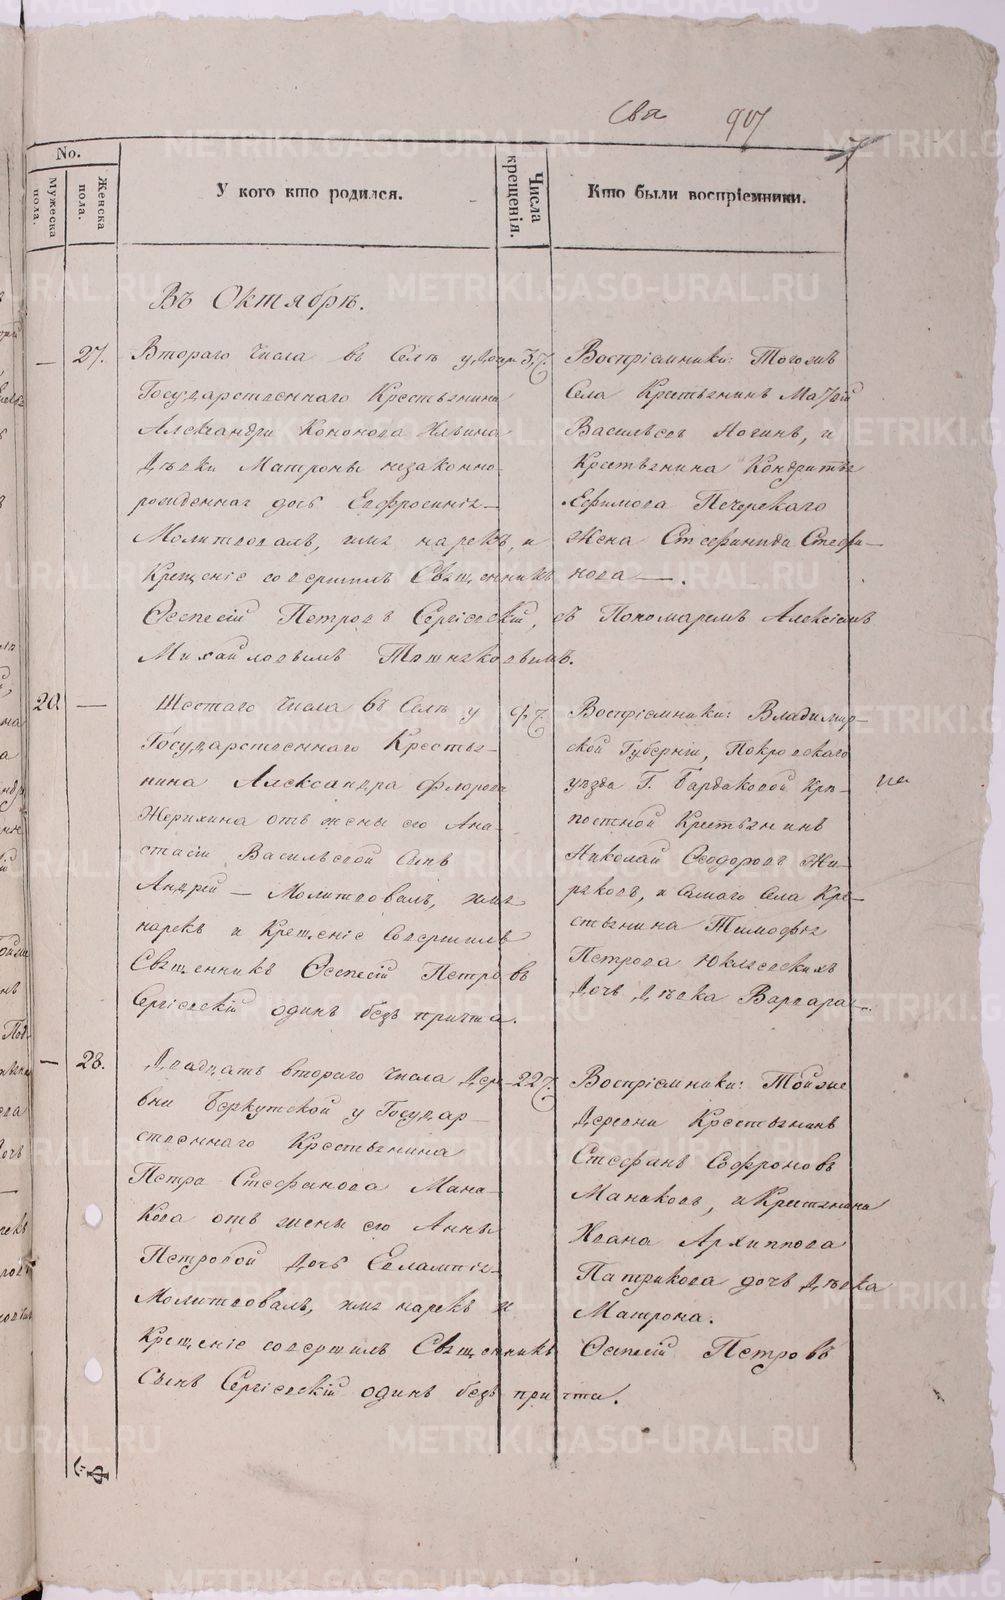 907
No.
Мужеска пола.
Женска пола.
У кого кто родился.
Числа крещенія.
Кто были воспріемники.
Въ Октябрѣ.
— 27. Втораго числа въ Селѣ у 3/7.
Государственнаго Крестьянина
Александра Кононова Ильина
Дѣвки Матроны незаконно-
рожденная дочь Евфросинія —
Молитвовалъ, имя нарекъ, и
Крещеніе совершилъ Священникъ
Евгеній Петровъ Сергіевскій, съ Пономаремъ Алексіемъ
Михайловымъ
Воспріемники: Тогожъ
Села Крестьянинъ Матѳій
Васильевъ Ногинъ, и
Крестьянина Кондратья
Ефимова Печерскаго
Жена Стефанида Стефа-
нова —.
20 — Шестаго числа въ Селѣ у 9/7.
Государственнаго Крестья-
нина Александра Флорова
Жерихина отъ жены его Ана-
стасіи Васильевой Сынъ
Андрей — Молитвовалъ, имя
нарекъ и Крещеніе Совершилъ
Священникъ Евгеній Петровъ
Сергіевскій одинъ безъ причта.
Воспріемники: Владимір-
ской Губерніи, Покровскаго
уѣзда Г. Бардаковой Крѣ-
постной Крестьянинъ
Николай Ѳеодоровъ Жи-
ряковъ, и Самаго Села Кре-
стьянина Тимофея
Петрова
Дочь Дѣвка Варвара —.
— 28. Двадцать втораго числа Дере- 22/7.
вни Беркутской у Государ-
ственнаго Крестьянина
Петра Стефанова Мана-
кова отъ жены его Анны
Петровой Дочь Евлампія —
Молитвовалъ, имя нарекъ и
Крещеніе совершилъ Священникъ Евгеній Петровъ
Сынъ Сергіевскій одинъ безъ причта.
Воспріемники: Тойже
Деревни Крестьянинъ
Стефанъ Софроновъ
Манаковъ, и Крестьянина
Ивана Архиппова
Патракова дочь Дѣвка
Матрона.
METRIKI.GASO-URAL.RU